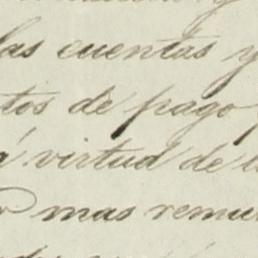 las cuentas y
tos de pago
á virtud de l
mas remu